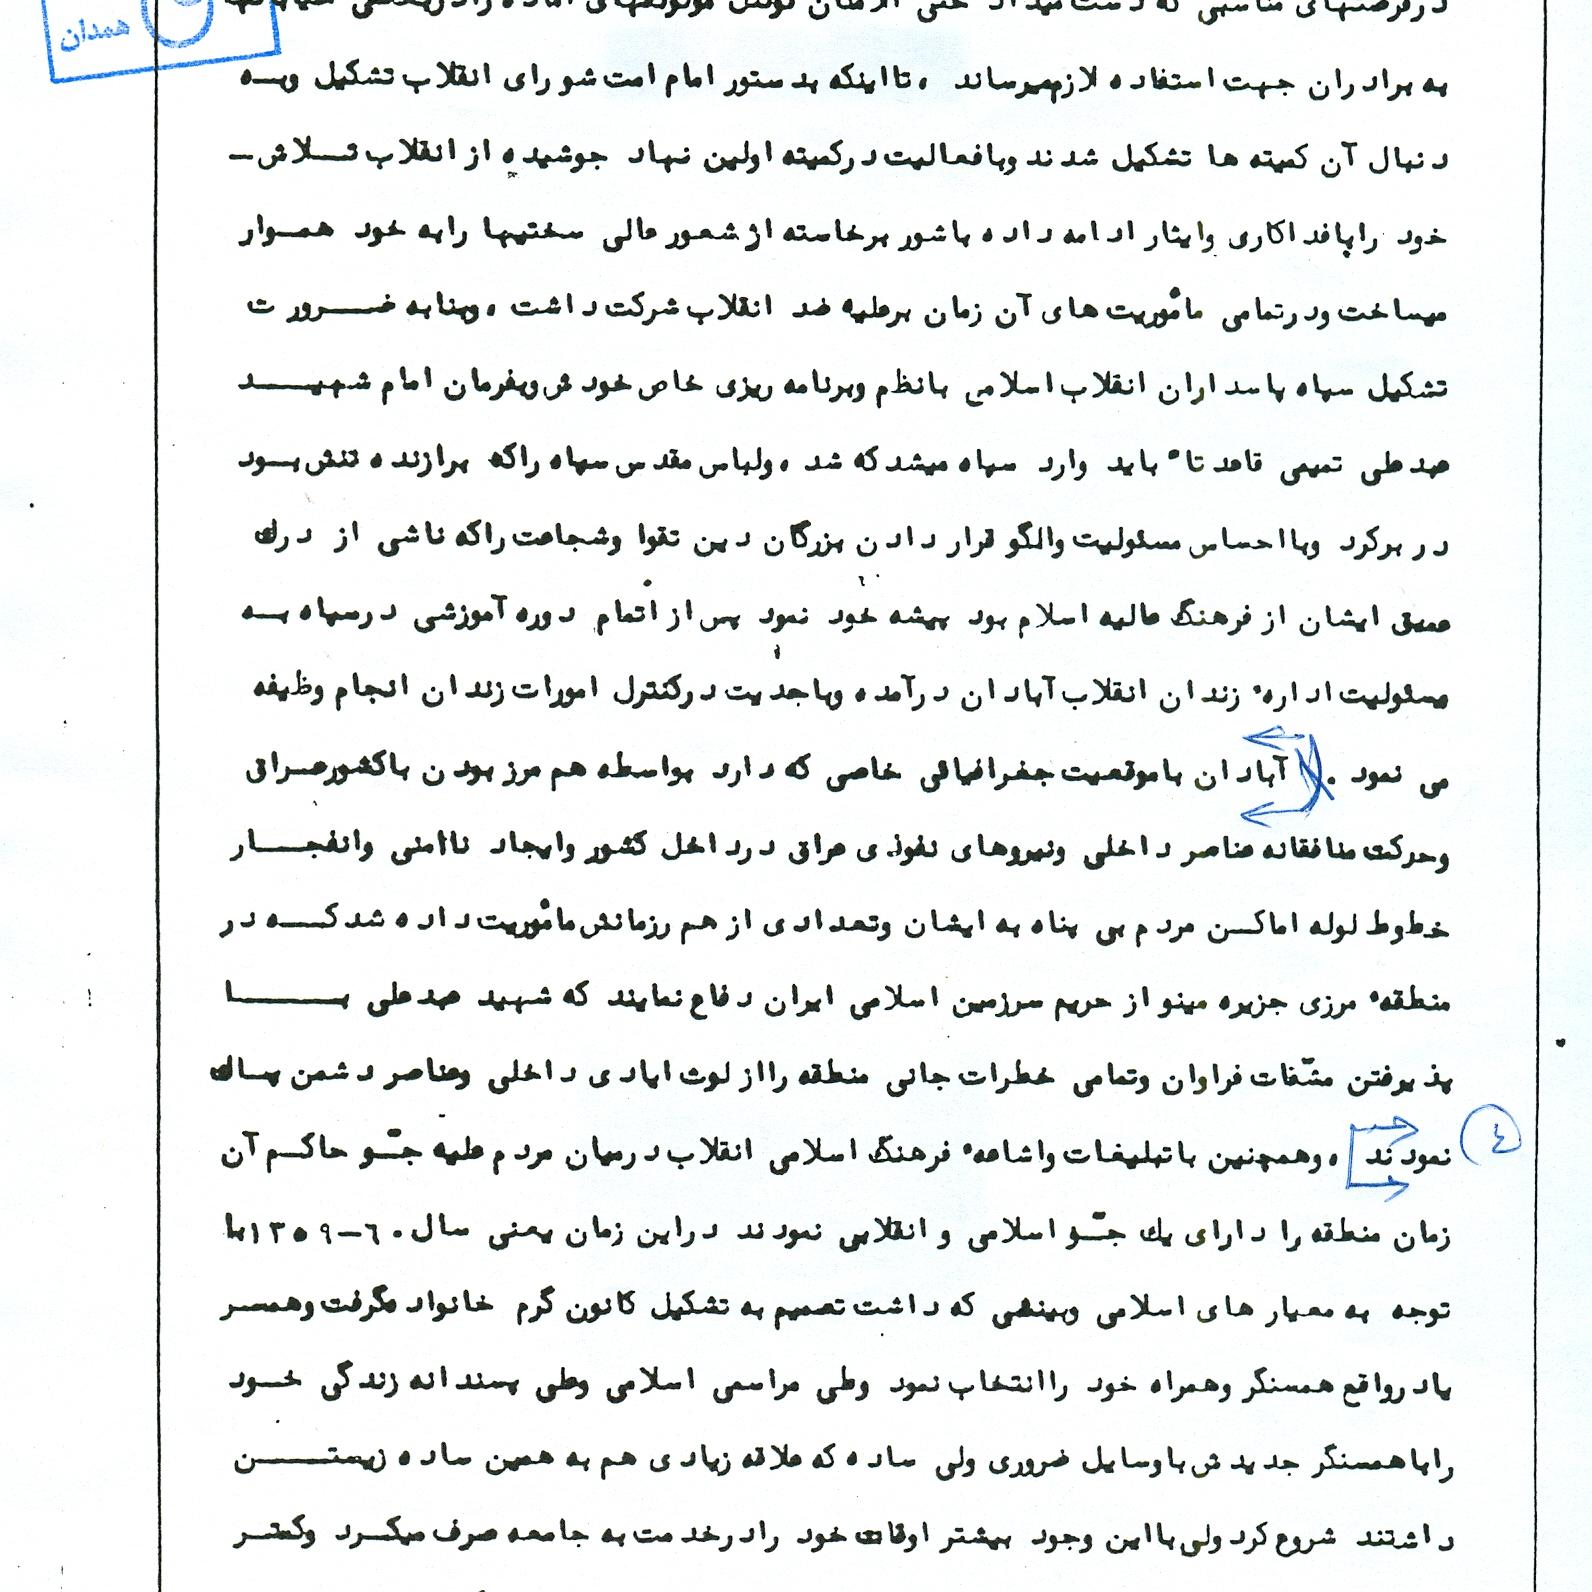 همدان
درفرصتهای مناسبی که دست میداد حتی الامکان
به برادران جهت استفاده لازم میرساند ، تااینکه بدستور امام امت شورای انقلاب تشکیل وبه
دنبال آن کمیته ها تشکیل شدند وبافعالیت درکمیته اولین نهاد جوشیده از انقلاب تلاش
خود رابافداکاری وایثار ادامه داده باشور برخاسته از شعور عالی سختیها رابه خود هموار
میساخت ودرتمامی مأموریت های آن زمان برعلیه ضد انقلاب شرکت داشت ، وبنابه ضرورت
تشکیل سپاه پاسداران انقلاب اسلامی بانظم وبرنامه ریزی خاص خودش وبفرمان امام شهید
عبدعلی تمیمی قاعدتاً باید وارد سپاه میشد که شد ، ولباس مقدس سپاه راکه برازنده تنش بود
در برکرد وبااحساس مسئولیت والگو قرار دادن بزرگان دین تقوا وشجاعت راکه ناشی از درک
عمیق ایشان از فرهنگ عالیه اسلام بود پیشه خود نمود پس از اتمام دوره آموزشی درسپاه به
مسئولیت اداره زندان انقلاب آبادان درآمده وباجدیت درکنترل امورات زندان انجام وظیفه
می نمود . آبادان باموقعیت جغرافیائی خاصی که دارد بواسطه هم مرز بودن باکشورعراق
وحرکت منافقانه عناصر داخلی ونیروهای نفوذی عراق درداخل کشور وایجاد ناامنی وانفجار
خطوط لوله اماکن مردم بی پناه به ایشان وتعدادی از هم رزمانش مأموریت داده شدکه در
منطقه مرزی جزیره مینو از حریم سرزمین اسلامی ایران دفاع نمایند که شهید عبدعلی با
پذیرفتن مشقات فراوان وتمامی خطرات جانی منطقه رااز لوث ایادی داخلی وعناصر دشمن پاک
نمودند ، وهمچنین باتبلیغات واشاعه فرهنگ اسلامی انقلاب درمیان مردم علیه جوّ حاکم آن ٤
زمان منطقه را دارای یک جوّ اسلامی و انقلابی نمودند دراین زمان یعنی سال ۶۰-۱۳۵۹ با
توجه به معیار های اسلامی وبینشی که داشت تصمیم به تشکیل کانون گرم خانواده گرفت وهمسر
یادرواقع همسنگر وهمراه خود راانتخاب نمود وطی مراسمی اسلامی وطی پسندانه زندگی خود
راباهمسنگر جدیدش باوسایل ضروری ولی ساده که علاقه زیادی هم به همین ساده زیستن
داشتند شروع کرد ولی بااین وجود بیشتر اوقات خود رادرخدمت به جامعه صرف میکرد وکمتر